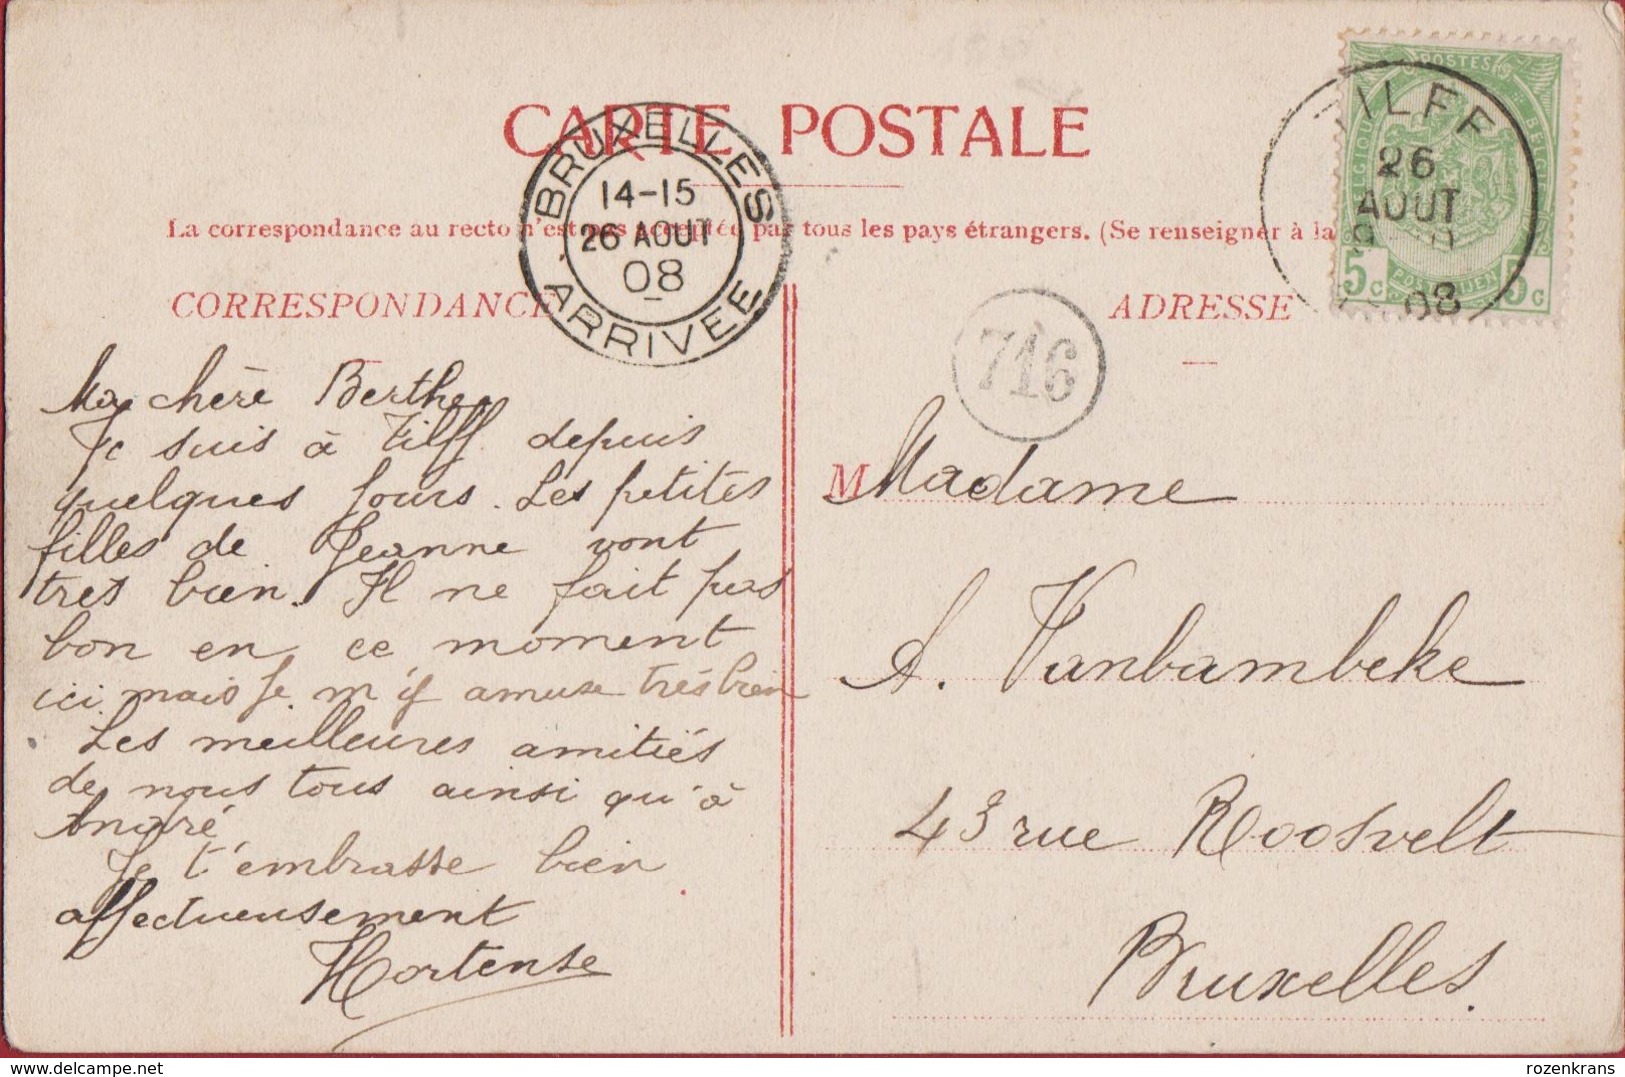 CARTE POSTALE
La correspondance au recto n'est pas acceptée par tous les pays étrangers. (Se renseigner à la
CORRESPONDANCE
ADRESSE
BRUXELLES
14-15
26 AOUT
08
ARRIVEE
TILFF
26
AOUT
08
POSTES
BELGIQUE
BELGIE
5c
5c
716
Ma chère Berthe
Je suis à Tilff depuis
quelques jours. Les petites
filles de Jeanne vont
très bien. Il ne fait pas
bon en ce moment
ici mais je m'y amuse très bien
Les meilleures amitiés
de nous tous ainsi qu'à
André
Je t'embrasse bien
affectueusement
Hortense
M Madame
A. Vanbambeke
43 rue Roosvelt
Bruxelles.
https://www.delcampe.net
rozenkrans